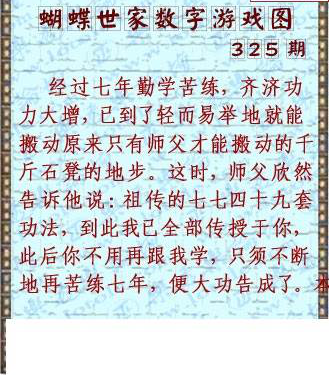 蝴蝶世家数字游戏图
325期
经过七年勤学苦练，齐济功
力大增，已到了轻而易举地就能
搬动原来只有师父才能搬动的千
斤石凳的地步。这时，师父欣然
告诉他说：祖传的七七四十九套
功法，到此我已全部传授于你，
此后你不用再跟我学，只须不断
地再苦练七年，便大功告成了。本